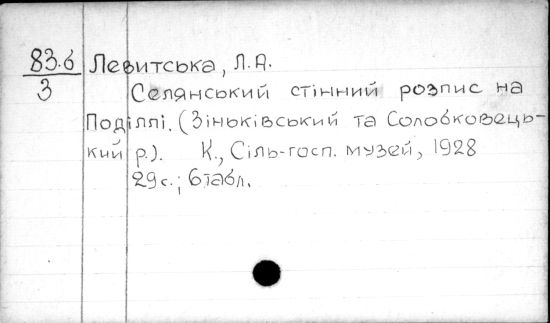 83.6 Левитська, Л.А.
3 Селянський стінний розпис на
Поділлі. (Зіньківський та Солобковець-
кий р.). К., Сіль-госп. музей, 1928
29с.; 6табл.